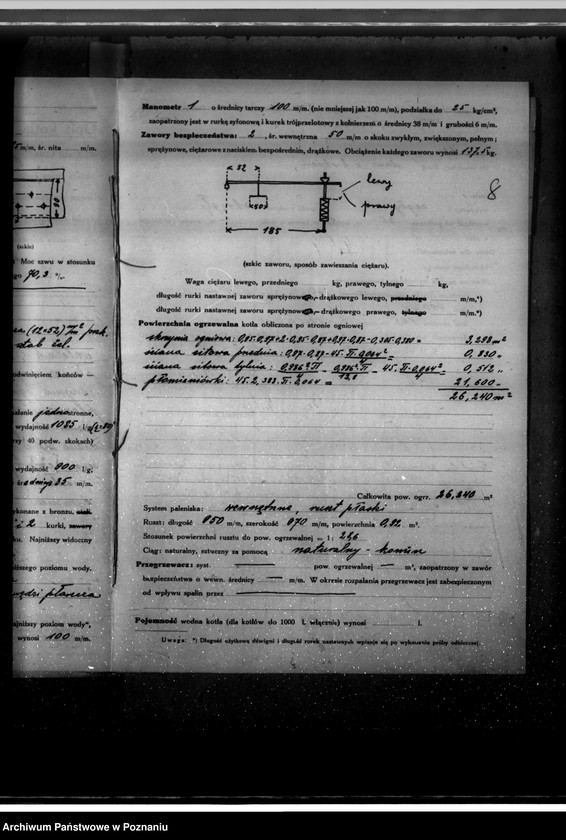 5 m/m, śr. nita m/m.
50
(szkic)
Moc szwu w stosunku
70,3 %
podwinięciem końców —
palanie jednostronne,
wydajność 1085 l/g
rzy 40 podw. skokach)
wydajność 900 l/g,
średnicy 35 m/m.
ykonane z bronzu,
i 2 kurki,
ku. Najniższy widoczny
niższego poziomu wody.
ajniższy poziom wody",
wynosi 100 m/m.
Manometr 1 o średnicy tarczy 100 m/m. (nie mniejszej jak 100 m/m), podziałka do 25 kg/cm²,
zaopatrzony jest w rurkę syfonową i kurek trójprzelotowy z kołnierzem o średnicy 38 m/m i grubości 6 m/m.
Zawory bezpieczeństwa: 2, śr. wewnętrzna 50 m/m o skoku zwykłym, zwiększonym, pełnym;
sprężynowe, ciężarowe z naciskiem bezpośrednim, drążkowe. Obciążenie każdego zaworu wynosi 137,5 kg.
32
lewy
8
50
prawy
185
(szkic zaworu, sposób zawieszania ciężaru).
Waga ciężaru lewego, przedniego kg, prawego, tylnego kg,
długość rurki nastawnej zaworu sprężynowo-drążkowego lewego, przedniego m/m,*)
długość rurki nastawnej zaworu sprężynowo-drążkowego prawego, tylnego m/m.*)
Powierzchnia ogrzewalna kotła obliczona po stronie ogniowej
skrzynia ogniowa: 3,298 m²
ściana sitowa przednia: 0,87·0,87-45·π·0,064² = 0,830 "
ściana sitowa tylna: 0,512 "
płomieniówki: 45·2,383·π·0,064 = 21,600
26,240 m²
Całkowita pow. ogrz. 26,240 m²
System paleniska: wewnętrzne, ruszt płaski
Ruszt: długość 850 m/m, szerokość 970 m/m, powierzchnia 0,82 m².
Stosunek powierzchni rusztu do pow. ogrzewalnej = 1:
Ciąg: naturalny, sztuczny za pomocą naturalny - komin
Przegrzewacz: syst. — pow. ogrzewalnej — m², zaopatrzony w zawór
bezpieczeństwa o wewn. średnicy — m/m. W okresie rozpalania przegrzewacz jest zabezpieczony
od wpływu spalin przez —
Pojemność wodna kotła (dla kotłów do 1000 l. włącznie) wynosi l.
Uwaga: *) Długość użytkową dźwigni i długość rurek nastawnych wpisuje się po wykonaniu próby odbiorczej.
Archiwum Państwowe w Poznaniu